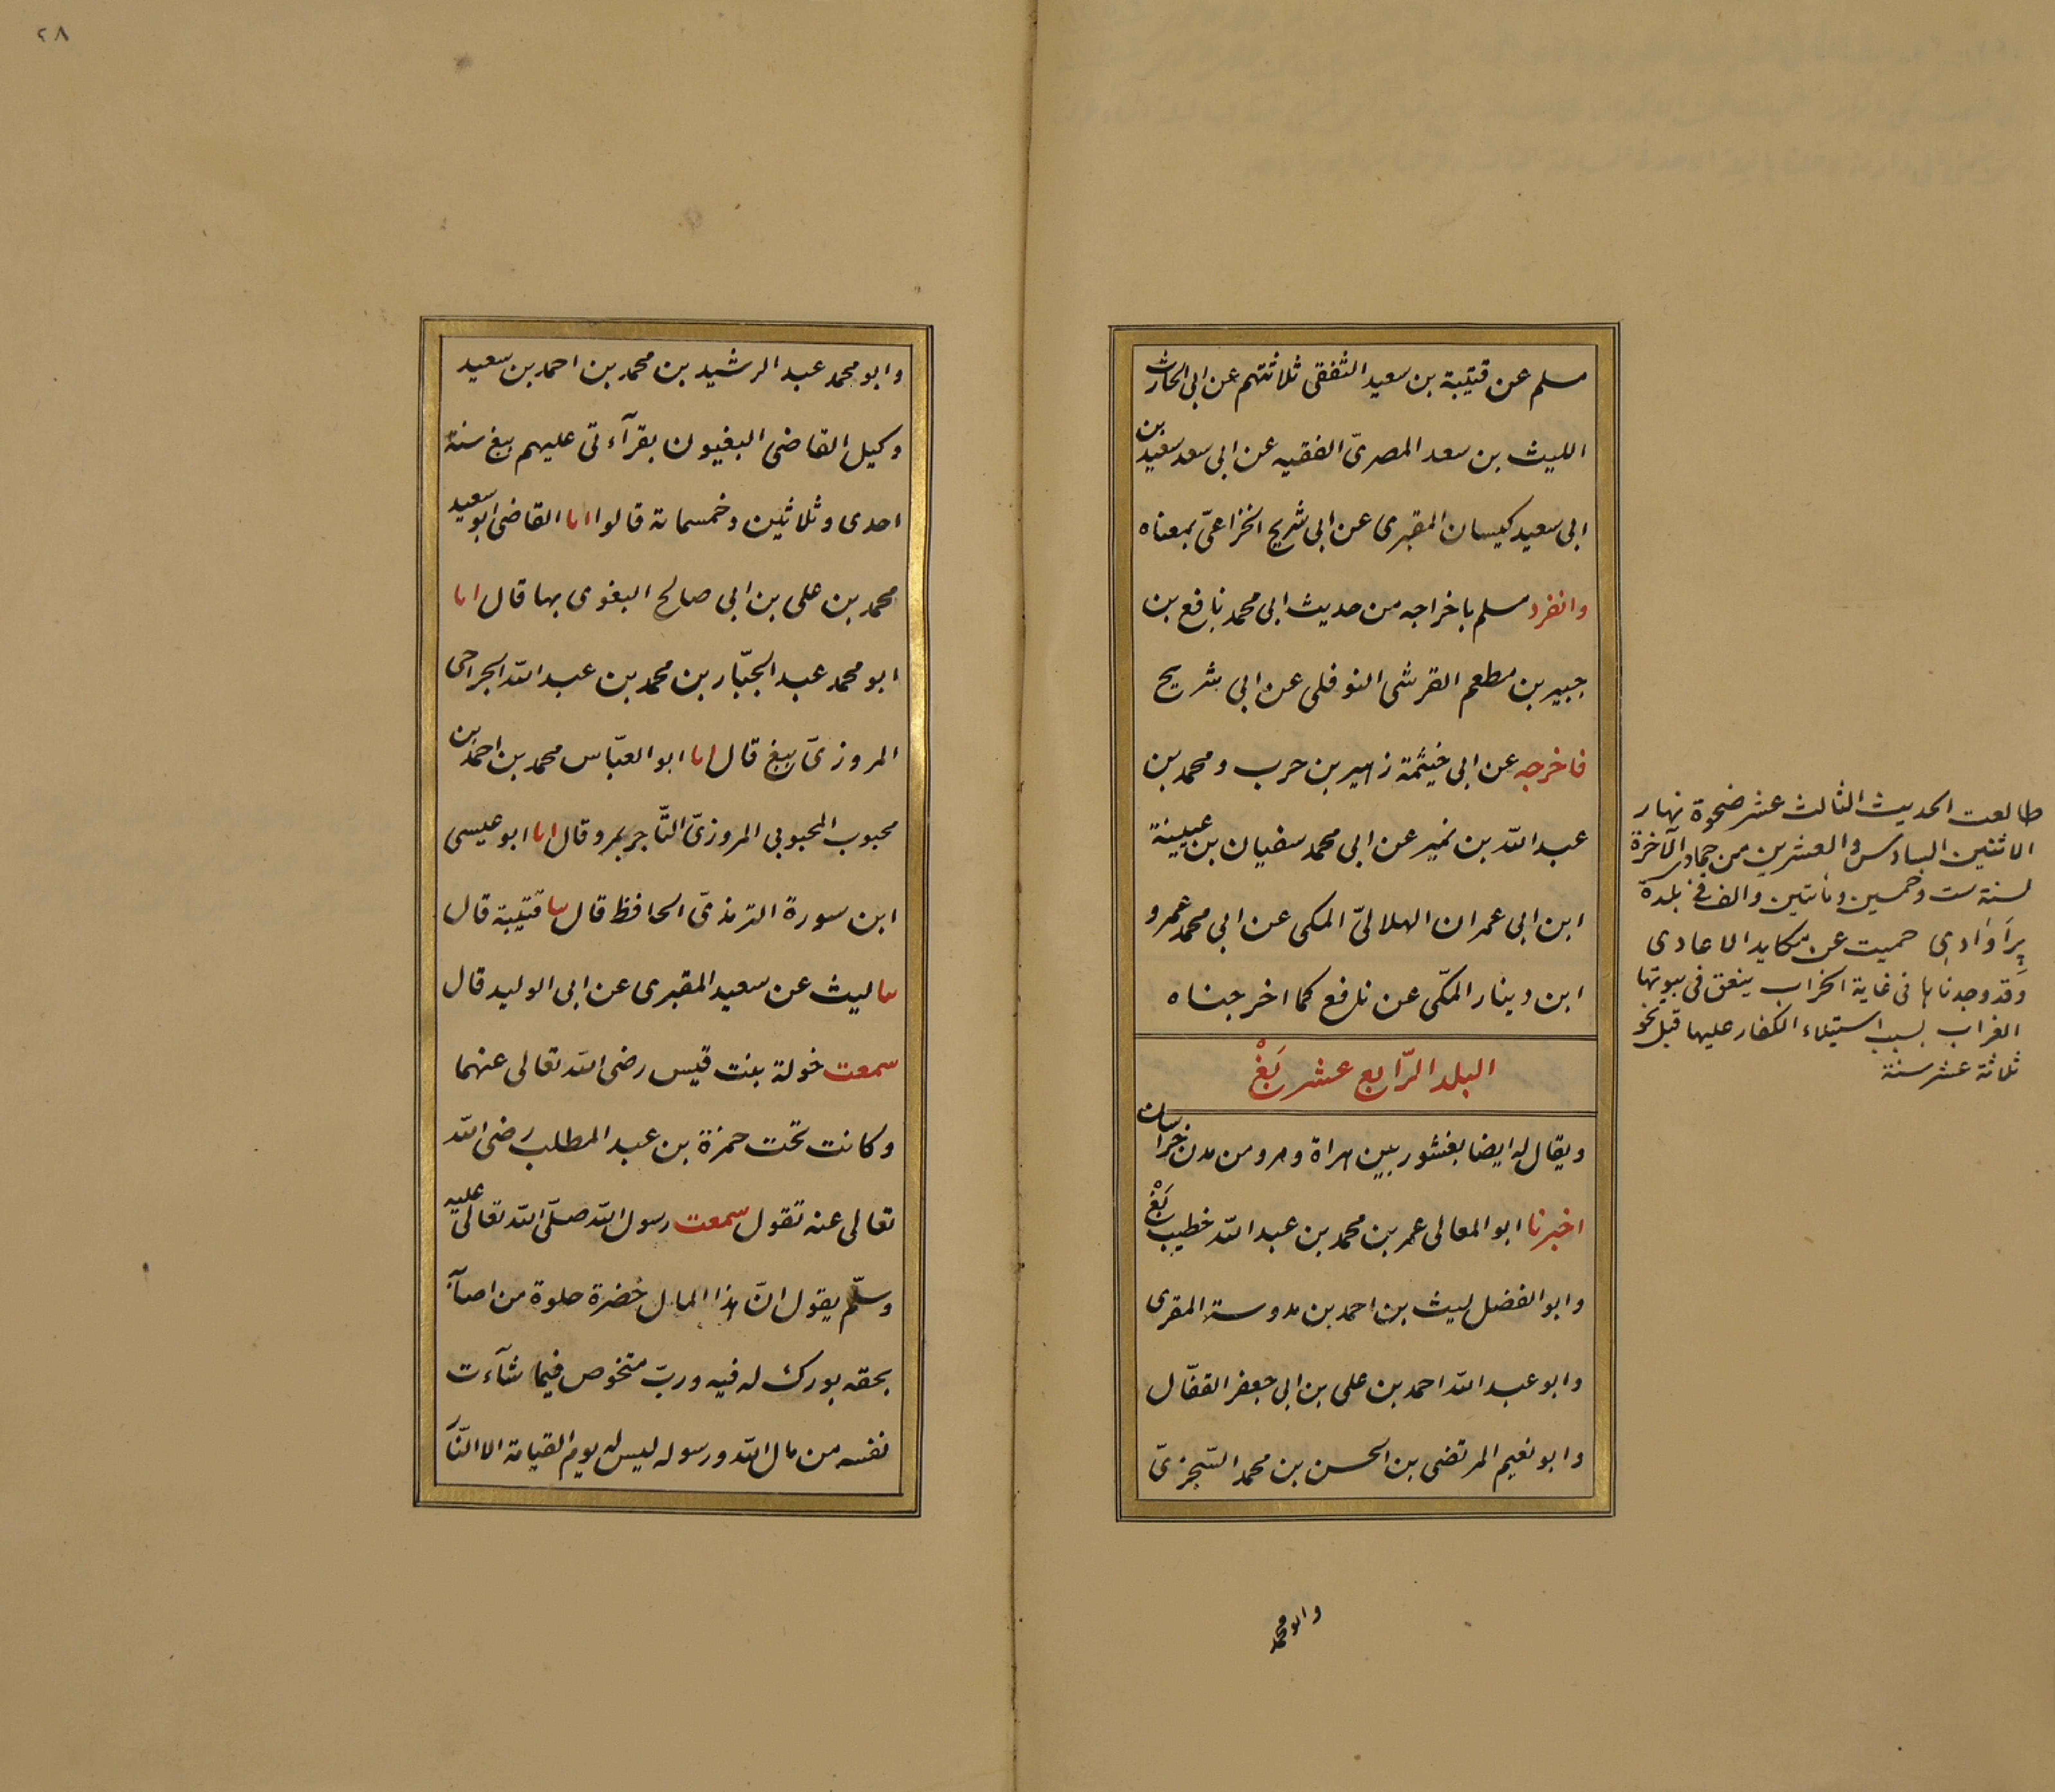 مسلم عن قتيبة بن سعيد الثقفى ثلاثتهم عن ابى الحارث
الليث بن سعد المصرىّ الفقيه عن ابى سعد سعيد بن
ابى سعيد كيسان المقبرى عن ابى شريح الخزاعىّ بمعناه
وانفرد مسلم باخراجه من حديث ابى محمد نافع بن
جبير بن مطعم القرشى النوفلى عن ابى شريح
فاخرجه عن ابى خيثمة زهير بن حرب ومحمد بن
عبد الله بن نمير عن ابى محمد سفيان بن عيينة
ابن ابى عمران الهلالىّ المكى عن ابى محمد عمرو
ابن دينار المكّى عن نافع كما اخرجناه
البلد الرّابع عشر بَغْ
ويقال له ايضا بغشور بين هراة ومرو من مدن خراسان
اخبرنا ابو المعالى عمر بن محمد بن عبد الله خطيب بَغْ
وابو الفضل ليث بن احمد بن مدوسة المقرى
وابو عبد الله احمد بن على بن ابى جعفر القفّال
وابو نعيم المرتضى بن الحسن بن محمد السّجزىّ
وابو محمد
طالعت الحديث الثالث عشر ضحوة نهار
الاثنين السادس والعشرين من جمادى الآخرة
لسنة ست وخمسين ومائتين والف فى بلدة
پِرَاوَادِى حميت عن مكايد الاعادى
وقد وجدناها فى غاية الخراب ينعق فى بيوتها
الغراب بسبب استيلاء الكفار عليها قبل نحو
ثلاثة عشر سنة
٢٨
وابو محمد عبد الرشيد بن محمد بن احمد بن سعيد
وكيل القاضى البغيون بقرآءتى عليهم ببغ سنة
احدى وثلاثين وخمسمائة قالوا انا القاضى ابو سعيد
محمد بن على بن ابى صالح البغوى بها قال انا
ابو محمد عبد الجبّار بن محمد بن عبد الله الجراحى
المروزىّ ببغ قال انا ابو العبّاس محمد بن احمد بن
محبوب المحبوبى المروزىّ التّاجر بمرو قال انا ابو عيسى
ابن سورة الترمذىّ الحافظ قال نا قتيبة قال
نا ليث عن سعيد المقبرى عن ابى الوليد قال
سمعت خولة بنت قيس رضى الله تعالى عنهما
وكانت تحت حمزة بن عبد المطلب رضى الله
تعالى عنه تقول سمعت رسول الله صلّى الله تعالى عليه
وسلّم يقول انّ هذا المال خضرة حلوة من اصابه
بحقه بورك له فيه وربّ متخوص فيما شآءت
نفسه من مال الله ورسوله ليس له يوم القيامة الا النّار